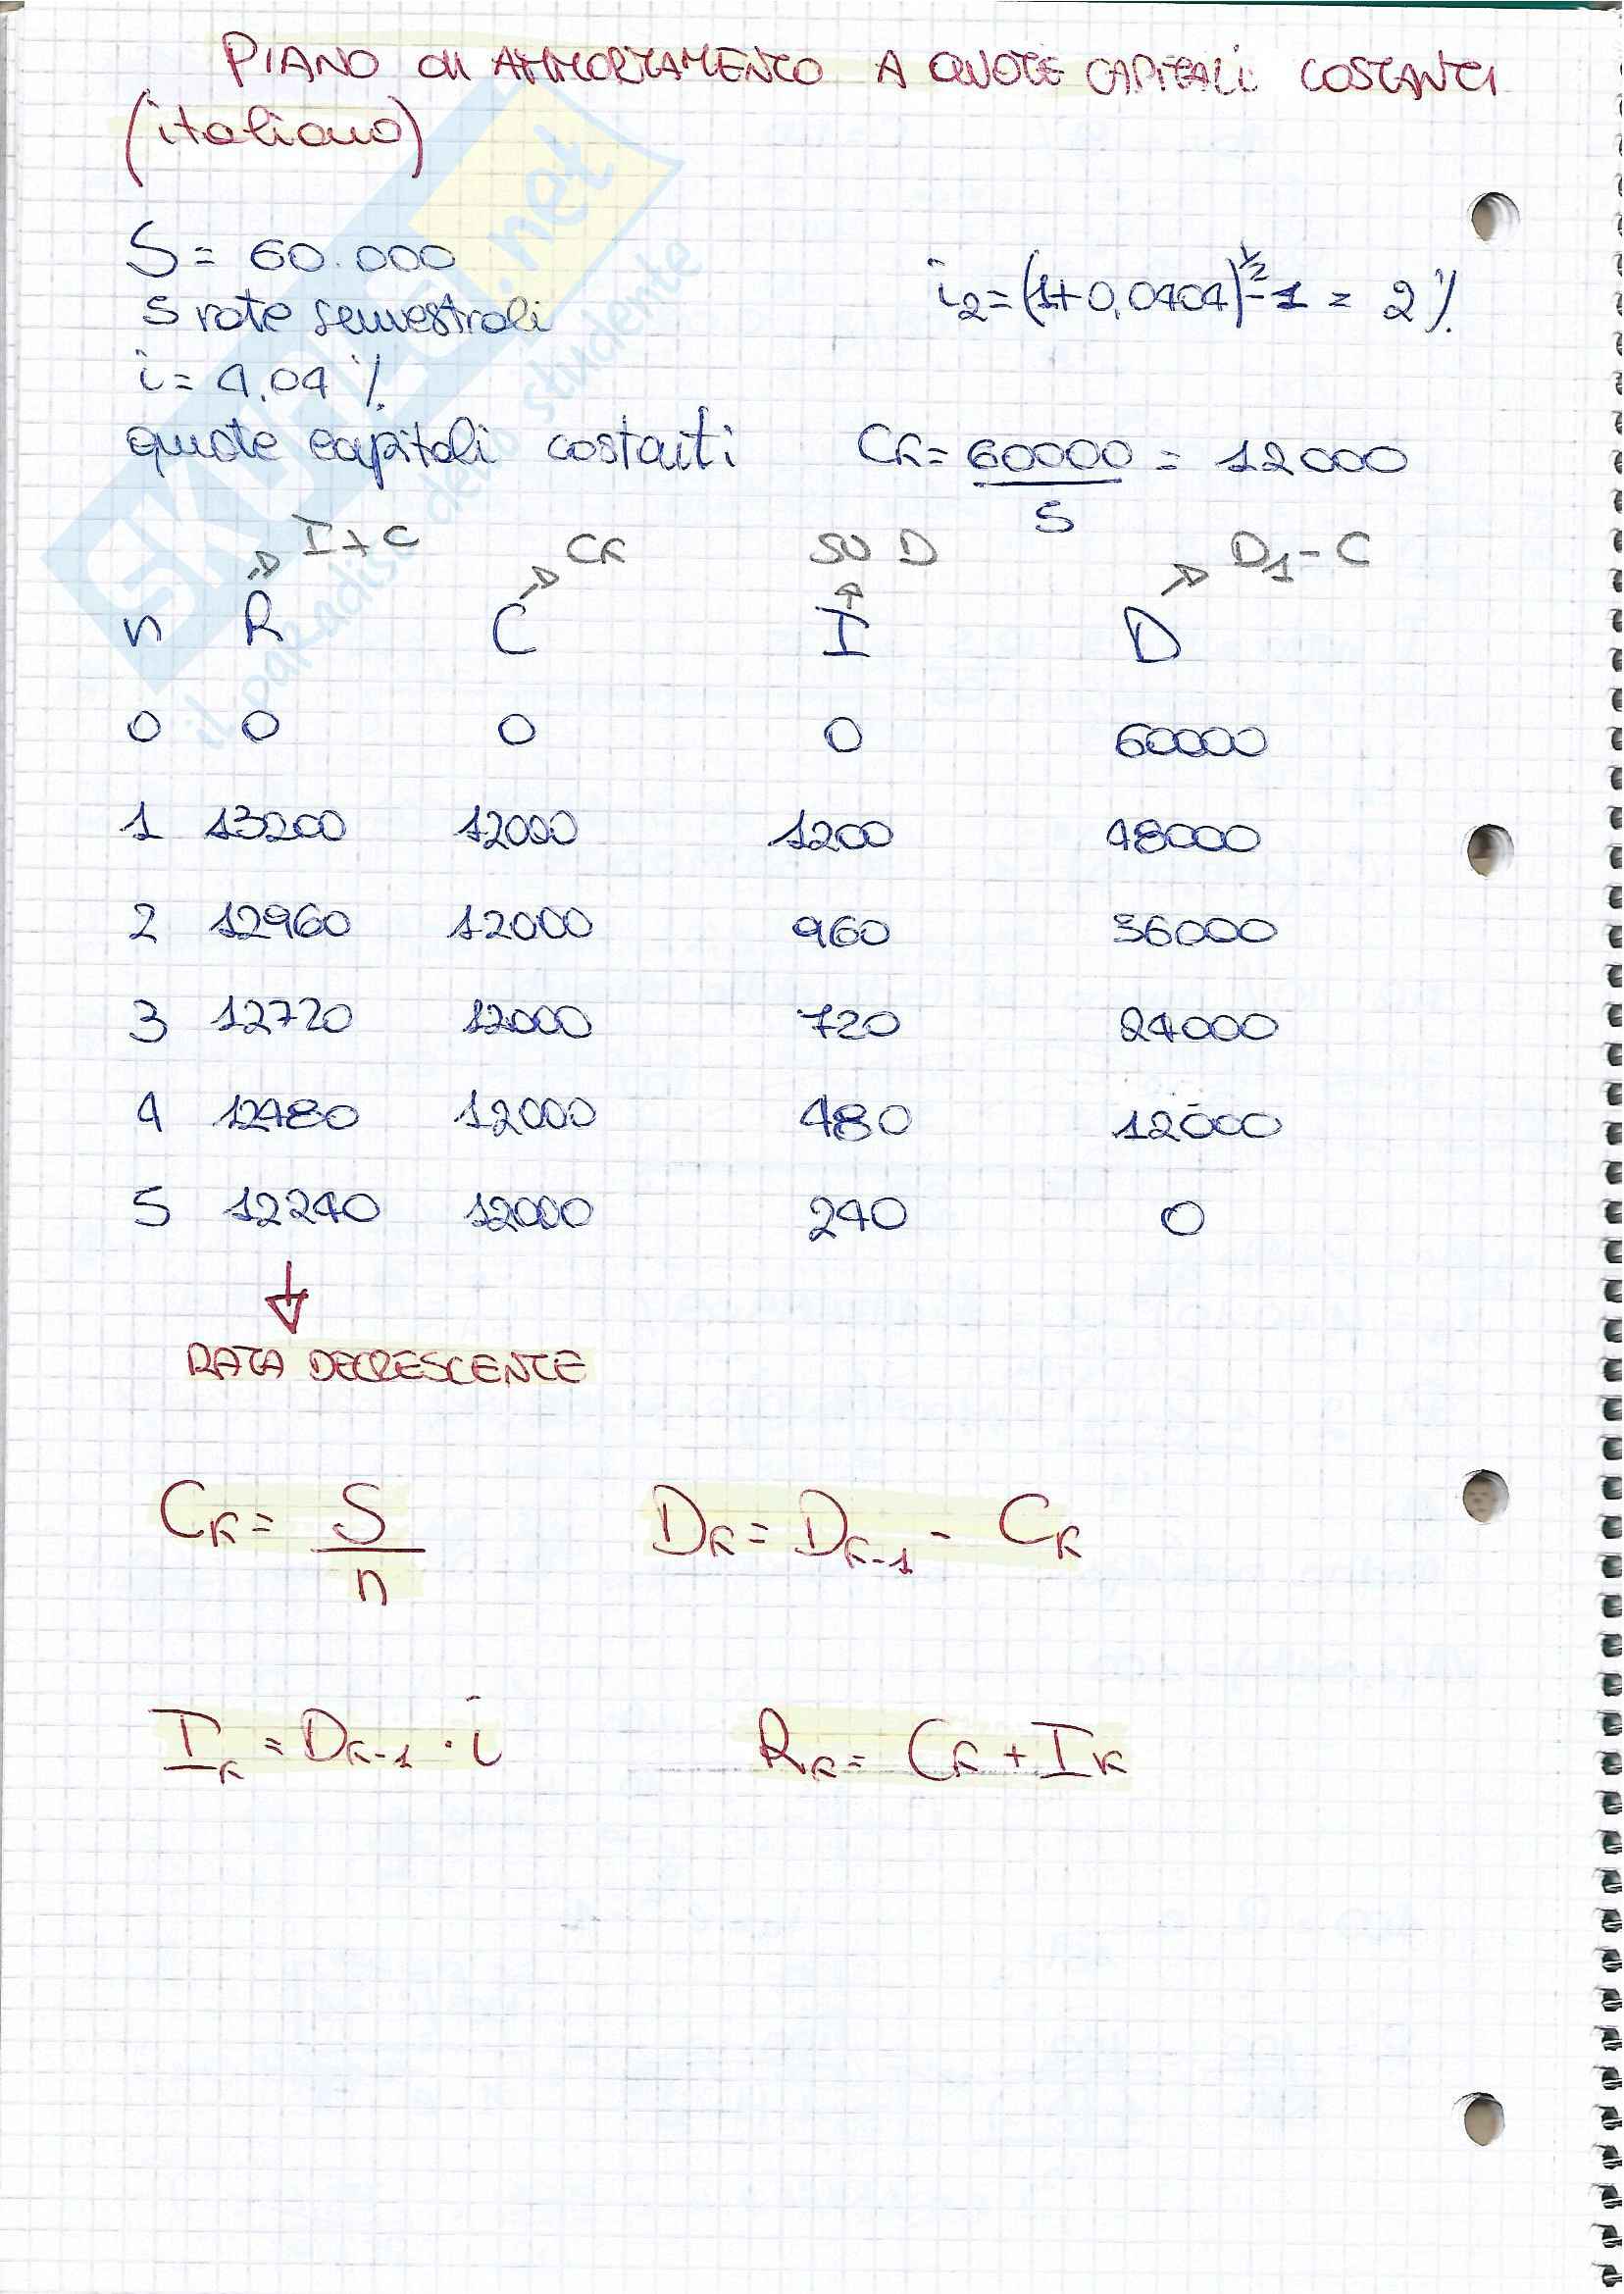 PIANO DI AMMORTAMENTO A QUOTE CAPITALI COSTANTI
(italiano)
S = 60.000
5 rate semestrali
i = 4,04 %
i₂ = (1+0,0404)^½ - 1 = 2%
quote capitali costanti CK = 60000 = 12000
5
I+C CK SU D D₁ - C
n R C I D
0 0 0 0 60000
1 13200 12000 1200 48000
2 12960 12000 960 36000
3 12720 12000 720 24000
4 12480 12000 480 12000
5 12240 12000 240 0
RATA DECRESCENTE
CK = S DK = DK-1 - CK
n
IK = DK-1 · i RK = CK + IK
SKUOLA.net
il paradiso dello studente